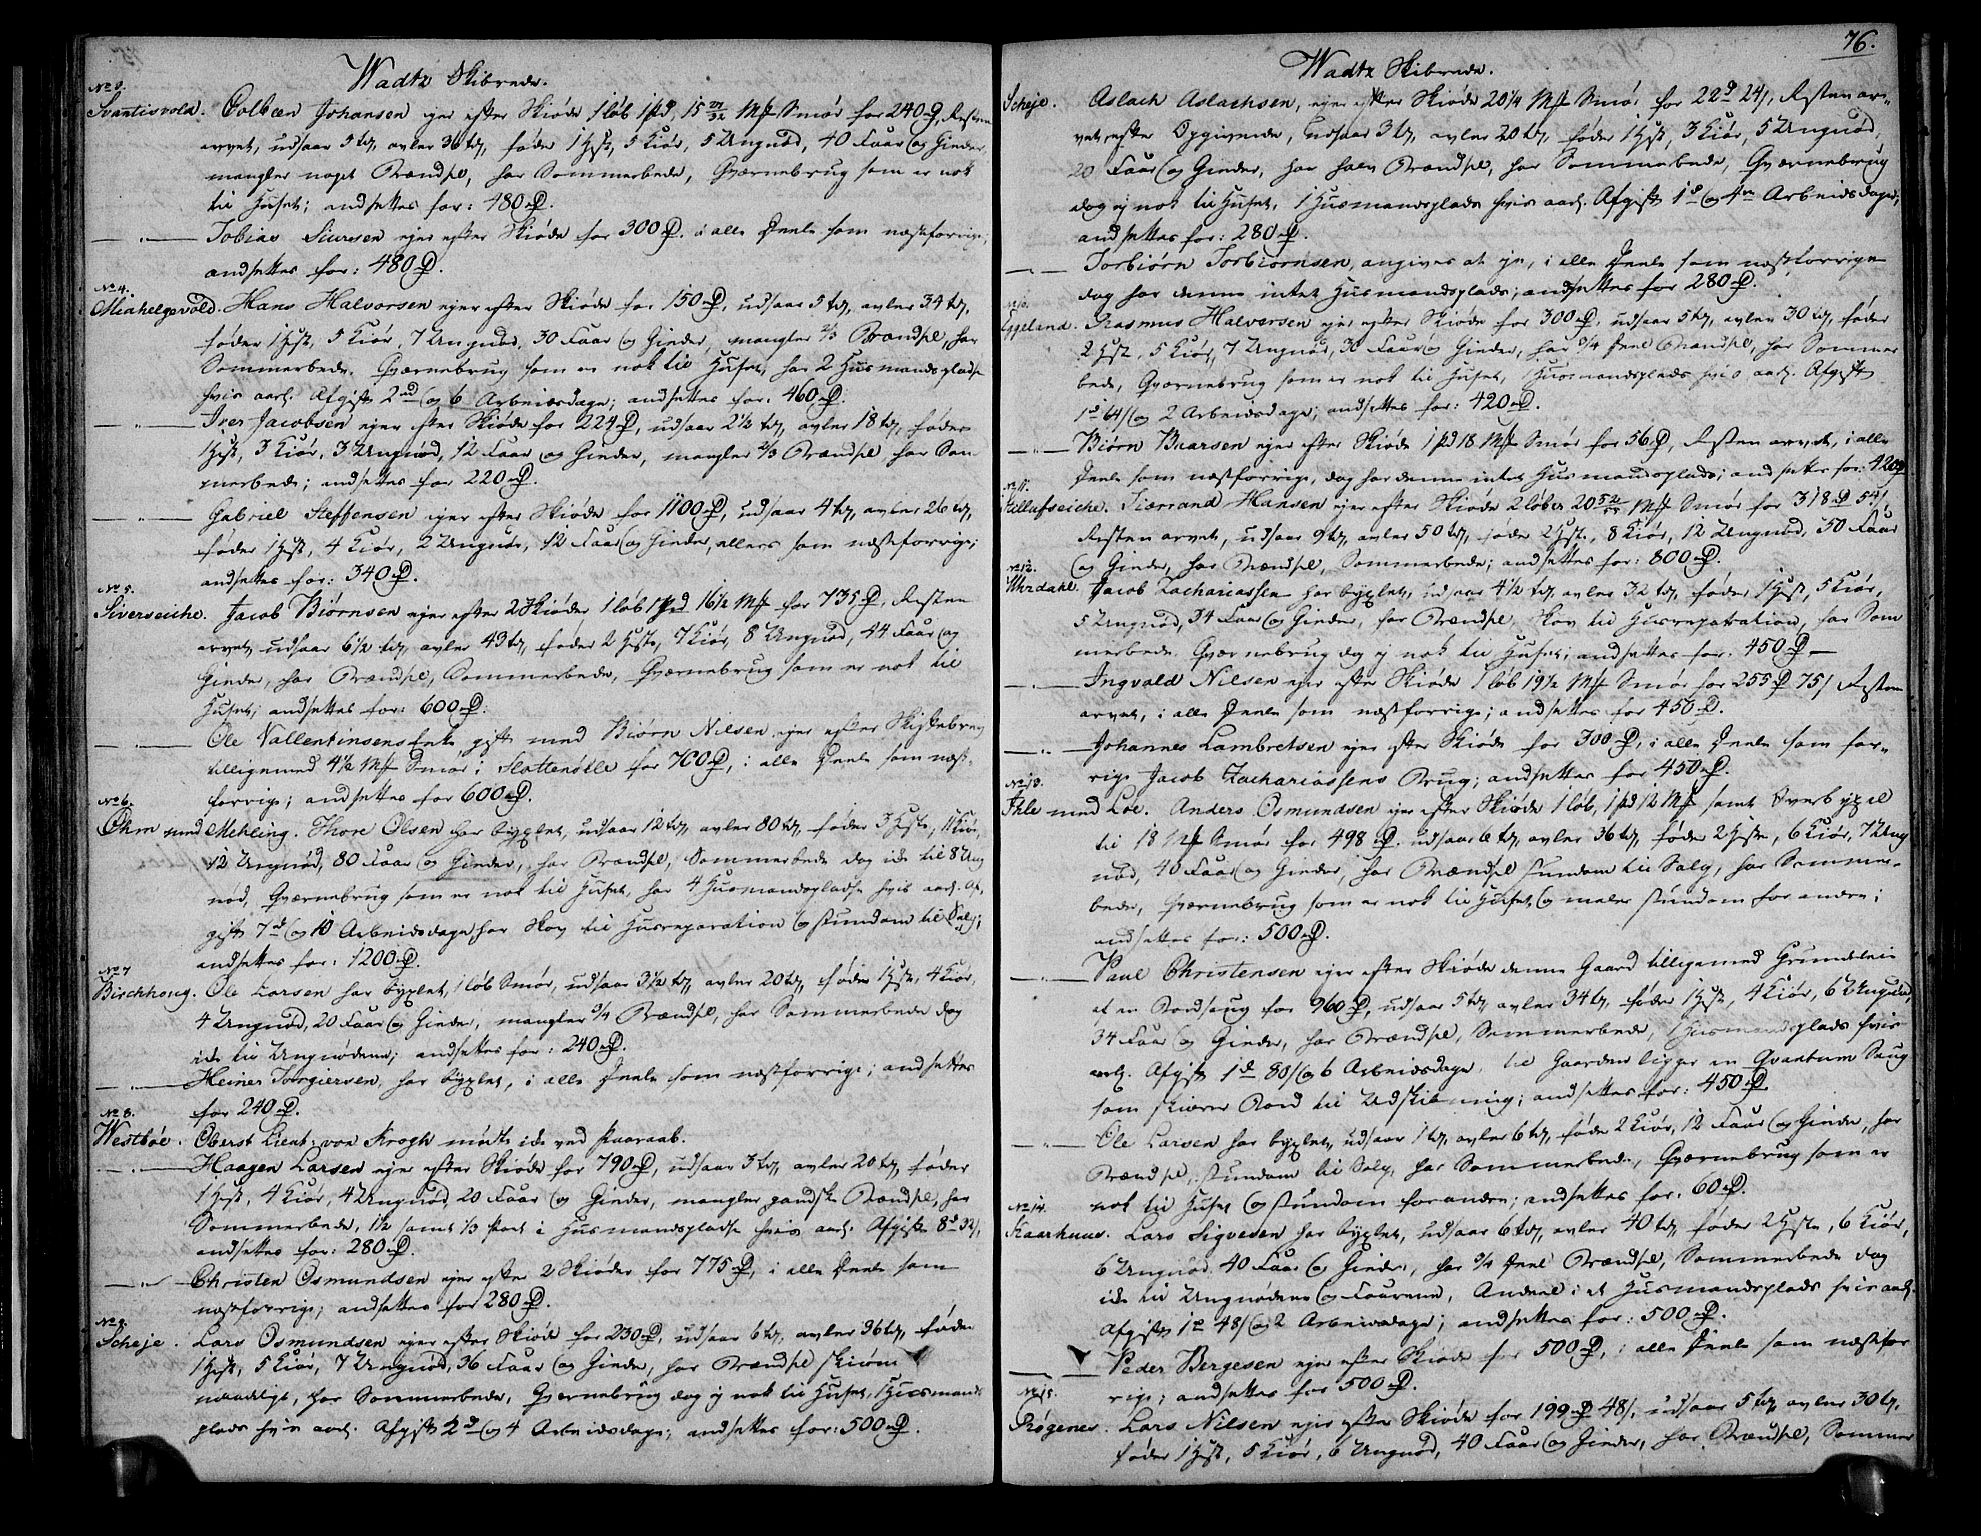 Wadtz Skibrede.
No 3.
Svantisvold. Colbeen Johansen ejer efter Skiøde 1 løb 1 pd, 15 Mk Smør for 240 D, Resten
arvet, udsaar 5 td, avler 36 td, føder 1 Hest, 5 Kiør, 5 Ungnød, 40 Faar og Gieder,
mangler noget Brændsel, har Sommerbede, Qværnebrug som er nok
til Huset; andsettes for: 480 D.
— " — Tobias Siursen ejer efter Skiøde for 300 D. i alle Deele som næstforrige,
andsettes for: 480 D.
No 4.
Miehelgsvold. Hans Halvorsen ejer efter Skiøde for 150 D, udsaar 5 td, avler 34 td,
føder 1 Hest, 5 Kiør, 7 Ungnød, 30 Faar og Gieder, mangler 2/3 Brændsel, har
Sommerbede, Qværnebrug som er nok til Huset, har 2 Husmandspladse
hvis aarl. Afgift 2 D og 6 Arbeidsdage; andsettes for. 460 D.
— " — Iver Jacobsen ejer efter Skiøde for 224 D, udsaar 2 1/2 td, avler 18 td, føder
1 Hest, 3 Kiør, 3 Ungnød, 12 Faar og Gieder, mangler 2/3 Brændsel har Som
merbede; andsettes for 220 D.
— " — Gabriel Steffensen ejer efter Skiøde for 1100 D, udsaar 4 td, avler 26 td,
føder 1 Hest, 4 Kiør, 2 Ungnød, 12 Faar og Gieder, ellers som næstforrige;
andsettes for: 340 D.
No 5.
Siverseiche. Jacob Biørnsen ejer efter 2 Skiøder 1 løb 1 pd 16 1/2 Mk for 735 D, Resten
arvet, udsaar 6 1/2 td, avler 43 td, føder 2 Heste, 7 Kiør, 8 Ungnød, 44 Faar og
Gieder, har Brændsel, Sommerbede, Qværnebrug som er nok til
Huset; andsettes for: 600 D.
— " — Ole Vallentinsens Enke gift med Biørn Nilsen, ejer efter Skiftebrev
tilligemed 4 1/2 Mk Smør i Slottenølle for 700 D, i alle Deele som næst-
forrige; andsettes for 600 D.
No 6.
Ohm med Mehling. Thore Olsen har bygslet, udsaar 12 td, avler 80 td, føder 3 Heste, 11 Kiør,
12 Ungnød, 80 Faar og Gieder, har Brændsel, Sommerbede dog ike til 8 Ung
nød, Qværnebrug som er nok til Huset, har 4 Husmandspladse hvis aarl. Af,
gift 7 D og 10 Arbeidsdage, har Skov til Husreparation og stundom til Salg;
andsettes for: 1200 D.
No 7
Birchhoug. Ole Larsen har bygslet, 1 løb Smør, udsaar 3 1/2 td, avler 20 td, føder 1 Hest, 4 Kiør,
4 Ungnød, 20 Faar og Gieder, mangler 3/4 Brændsel, har Sommerbede dog
ike til Ungnødene; andsettes for: 240 D.
— " — Heiner Torgiersen, har bygslet, i alle Deele som næstforrige; andsettes
for 240 D.
No 8.
Westbøe. Oberst Lieut: von Krogh mødte ike ved paaraab.
— " — Haagen Larsen ejer efter Skiøde for 790 D, udsaar 3 td, avler 20 td, føder
1 Hest, 4 Kiør, 4 Ungnød, 20 Faar og Gieder, mangler gandske Brændsel, har
Sommerbede, 1 1/2 samt 1/3 Part i Husmandspladse hvis aarl. Afgift 8 D 32 /,
andsettes for: 280 D.
— " — Christen Osmundsen ejer efter 2 Skiøder for 775 D, i alle Deele som
næstforrige; andsettes for 280 D.
No 9.
Scheje. Lars Osmundsen ejer efter Skiøde for 230 D, udsaar 6 td, avler 36 td, føder
1 Hest, 5 Kiør, 7 Ungnød, 36 Faar og Gieder, har Brændsel skiønt
maadeligt, har Sommerbede, Qværnebrug dog ej nok til Huset, 1 Husmands
plads hvis aarl. Afgift 2 D og 4 Arbeidsdage; andsettes for: 500 D.
76.
Wadtz Skibrede.
Scheje. Aslach Aslachsen, ejer efter Skiøde 20 1/4 Mk Smør for 22 D 24 /, Resten ar-
vet efter Opgivende, Udsaar 3 td, avler 20 td, føder 1 Hest, 3 Kiør, 5 Ungnød,
20 Faar og Gieder, har halv Brændsel, har Sommerbede, Qværnebrug
dog ej nok til Huset, 1 Husmandsplads hvis aarl. Afgift 1 D og 4 Arbeids dage,
andsettes for: 280 D.
— " — Torbiørn Torbiørnsen, angives at eje, i alle Deele som næstforrige
dog har denne intet Husmandsplads; andsettes for 280 D.
No 10.
Eggeland. Rasmus Halvorsen ejer efter Skiøde for 300 D, udsaar 5 td, avler 30 td, føder
2 Hest, 5 Kiør, 7 Ungnød, 30 Faar og Gieder, har 3/4 Deel Brændsel, har Sommer
bede, Qværnebrug som er nok til Huset, 1 Husmandsplads hvis aarl. Afgift
1 D 64 / og 2 Arbeidsdage; andsettes for: 420 D.
— " — Biørn Baarsen ejer efter Skiøde 1 pd 18 Mk Smør for 56 D, Resten arvet, i alle
Deele som næstforrige, dog har denne intet Husmandsplads; andsettes for: 420 D
No 11.
Tillufseiche. Tiærrand Hansen ejer efter Skiøde 2 løber 20 Mk Smør for 318 D 54 /,
Resten arvet, udsaar 9 td, avler 50 td, føder 2 Heste, 8 Kiør, 12 Ungnød, 50 Faar
og Gieder, har Brændsel, Sommerbede; andsettes for: 800 D.
No 12.
Urdahl. Jacob Zachariassen har bygslet, udsaar 4 1/2 td, avler 32 td, føder 1 Hest, 5 Kiør,
5 Ungnød, 34 Faar og Gieder, har Brændsel, Skov til Husreparation, har Som
merbede, Qværnebrug dog ej nok til Huset; andsettes for. 450 D —
— " — Ingvald Nilsen ejer efter Skiøde 1 løb 19 1/2 Mk Smør for 255 D 75 / Resten
arvet, i alle Deele som næstforrige; andsettes for 450 D.
— " — Johannes Lambretsen ejer efter Skiøde for 300 D, i alle Deele som for-
rige Jacob Zachariassens Brug; andsettes for 450 D.
No 13.
Ihle med Loe. Anders Osmundsen ejer efter Skiøde 1 løb, 1 pd 12 Mk samt Overbygsel
til 18 Mk Smør for 498 D. udsaar 6 td, avler 36 td, føder 2 Heste, 6 Kiør, 7 Ung
nød, 40 Faar og Gieder, har Brændsel stundom til Salg, har Sommer-
bede, Qværnebrug som er nok til Huset og maler stundom for andre;
andsettes for: 500 D.
— " — Paul Christensen ejer efter Skiøde denne Gaard tilligemed Grundeleie
af en Bordsaug for 960 D, udsaar 5 td, avler 34 td, føder 1 Hest, 4 Kiør, 6 Ungnød,
34 Faar og Gieder, har Brændsel, Sommerbede, 1 Husmandsplads hvis
aarl. Afgift 1 D 80 / og 6 Arbeidsdage, til Gaarden ligger en Qvantum Saug
som skiærer Bord til Udskibning; andsettes for: 450 D.
— " — Ole Larsen har bygslet, udsaar 1 td, avler 6 td, føder 2 Kiør, 12 Faar og Gieder, har
Brændsel, stundom til Salg, har Sommerbede, Qværnebrug som er
nok til Huset og stundom for andre; andsettes for. 60 D.
No 14.
Kaarhuus. Lars Sigvesen har bygslet, udsaar 6 td, avler 40 td, føder 2 Heste, 6 Kiør,
6 Ungnød, 40 Faar og Gieder, har 3/4 Deel Brændsel, Sommerbede dog
ike til Ungnødene og Faarene, Andeel i et Husmandsplads hvis aarl.
Afgift 1 D 48 / og 2 Arbeidsdage; andsettes for: 500 D.
— Peder Bergesen ejer efter Skiøde for 500 D, i alle Deele som næstfor
rige; andsettes for 500 D.
No 15.
Røgenes. Lars Nilsen ejer efter Skiøde for 199 D 48 /, udsaar 5 td, avler 30 td,
føder 1 Hest, 5 Kiør, 6 Ungnød, 40 Faar og Gieder, har Brændsel, Sommer